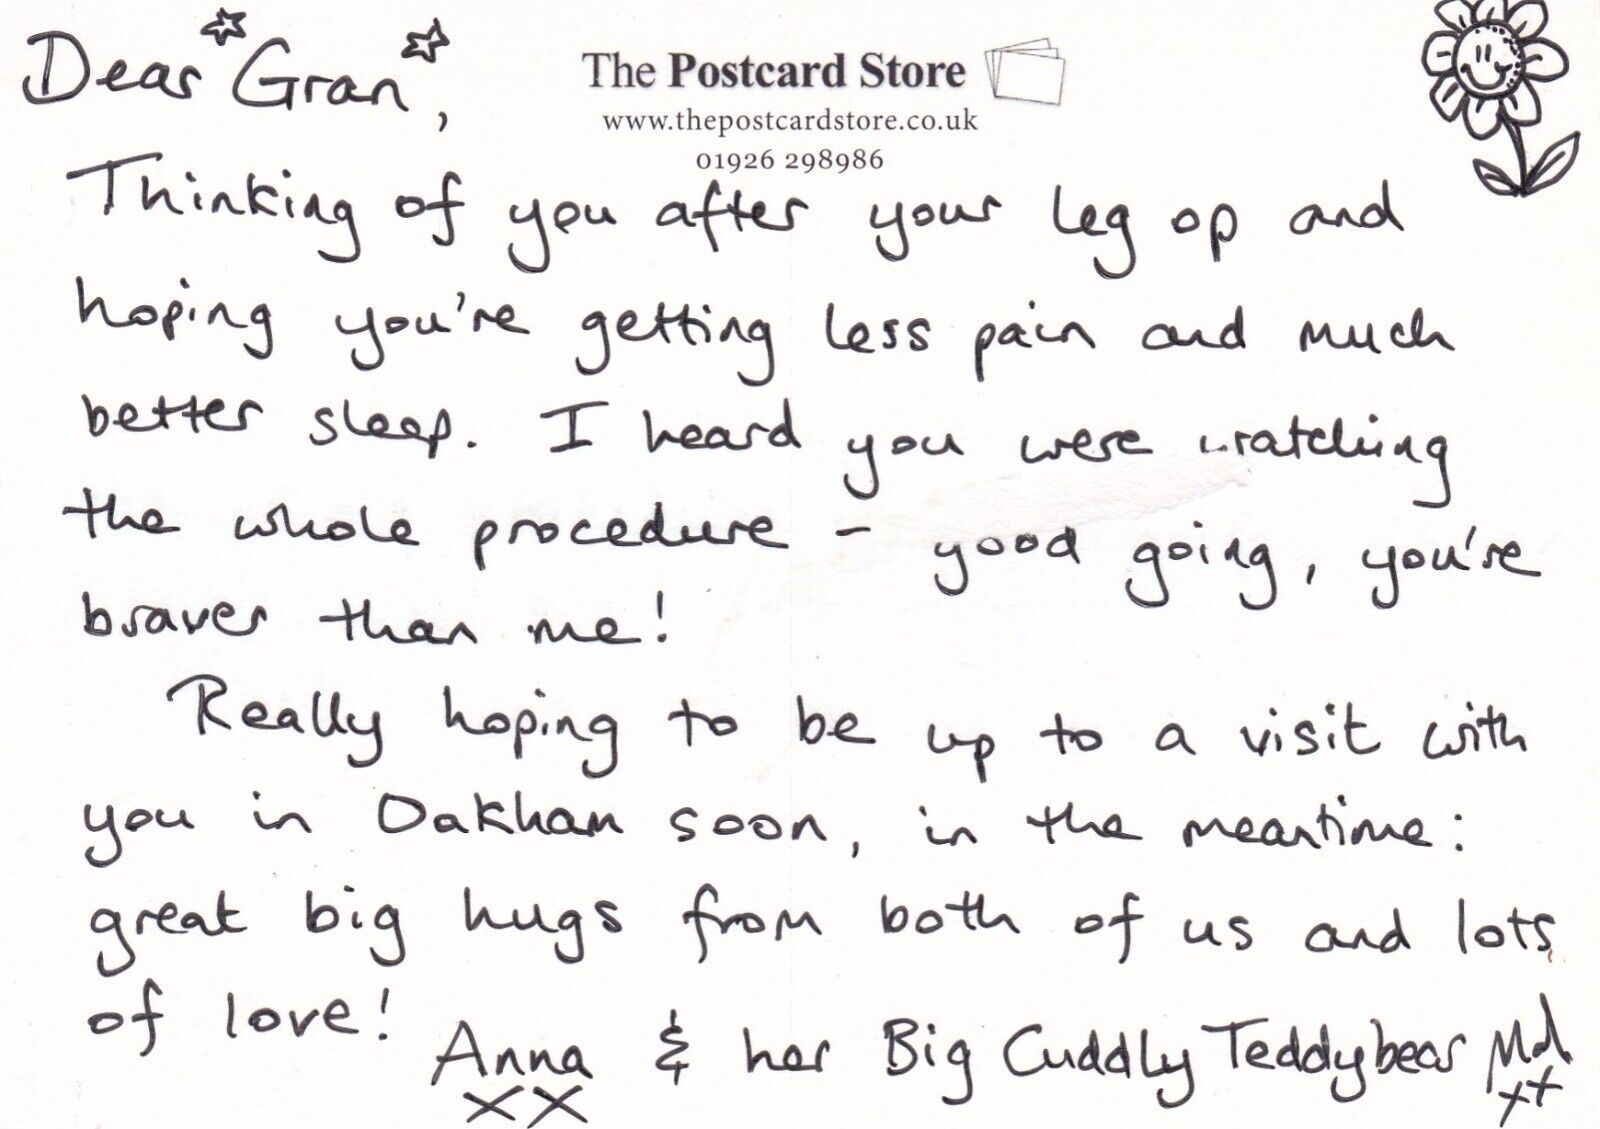 Dear Gran,
The Postcard Store
www.thepostcardstore.co.uk
01926 298986
Thinking of you after your leg op and
hoping you're getting less pain and much
better sleep. I heard you were watching
the whole procedure - good going, you're
braver than me!
Really hoping to be up to a visit with
you in Oakham soon, in the meantime:
great big hugs from both of us and lots
of love!
Anna & her Big Cuddly Teddybear
xx xx